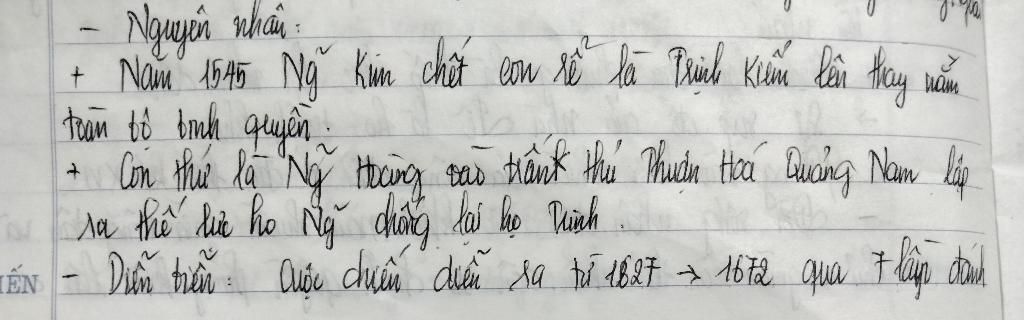 - Nguyên nhân:
+ Năm 1545 Ng~ Kim chết con rể là Trịnh Kiểm lên thay nắm
toàn bộ binh quyền.
+ Con thứ là Ng~ Hoàng vào trấn thủ Thuận Hoá Quảng Nam lập
ra thế lực họ Ng~ chống lại họ Trịnh.
IẾN - Diễn biến: Cuộc chiến diễn ra từ 1627 → 1672 qua 7 lần đánh